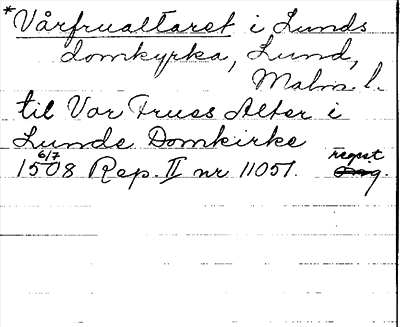 *Vårfrualtaret i Lunds
domkyrka, Lund,
Malm l.
til Vor Frues Alter i
Lunde Domkirke
6/7 regest
1508 Rep. II nr 11051.